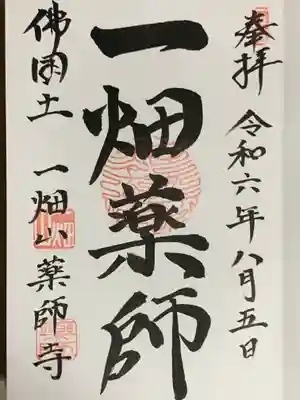 奉拝 令和六年八月五日
一畑薬師
佛国土 一畑山薬師寺